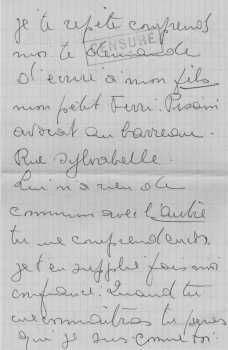 je te répète comprends
moi te demande
CENSURE
d'écrire à mon fils
mon petit Ferri-Pisani
avocat au barreau.
Rue Sylvabelle.
Lui n'a rien de
commun avec l'autre
tu me comprends
je t'en supplie fais moi
confiance. Quand tu
me connaitras tu
que je suis comme toi